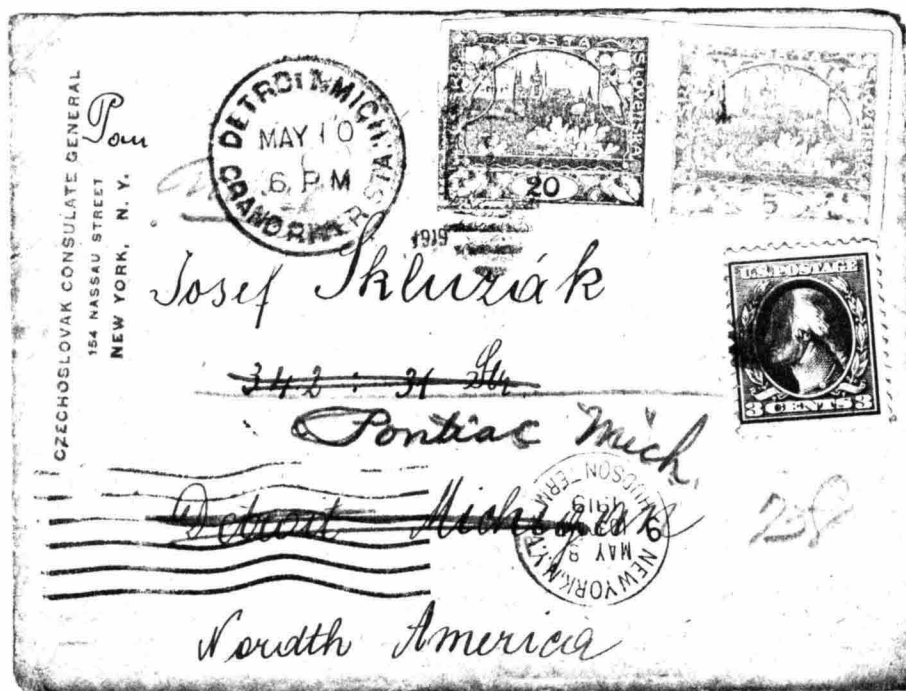 CZECHOSLOVAK CONSULATE GENERAL
154 NASSAU STREET
NEW YORK, N. Y.
Pan
DETROIT, MICH.
MAY 10
6 PM
GRAND RIVER STA.
1919
POSTA
SLOVENSKA
20
5
U.S. POSTAGE
3 CENTS 3
Josef Skluziák
342 : 31 Str
Pontiac Mich.
Detroit Michigan
NEW YORK, N.Y.
HUDSON TERM.
MAY 9
1919
Nordth America
258